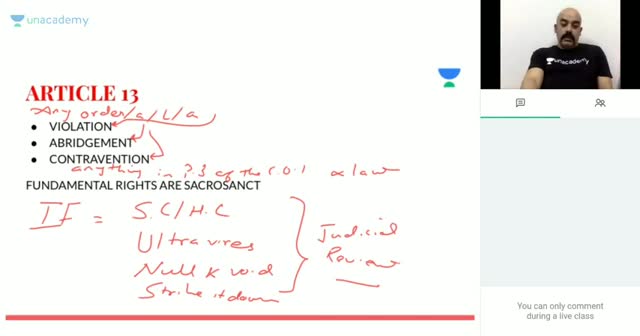 unacademy
ARTICLE 13
Any order/a/L/a
VIOLATION
ABRIDGEMENT
CONTRAVENTION
anything in P.3 of the C.O.I a law
FUNDAMENTAL RIGHTS ARE SACROSANCT
IF = S.C/H.C
Ultravires
Null & void
Strike it down
Judicial
Review
unacademy
You can only comment
during a live class